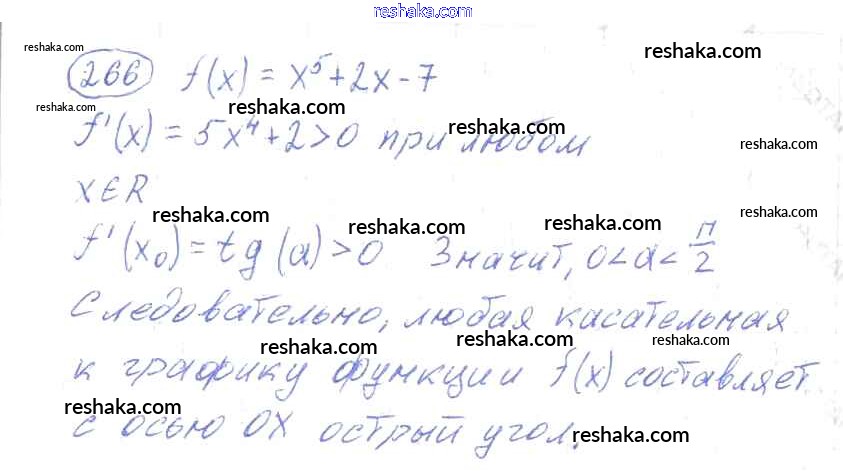 reshaka.com
reshaka.com
reshaka.com
266 f(x) = x⁵ + 2x - 7
reshaka.com
reshaka.com
f'(x) = 5x⁴ + 2 > 0 при любом
reshaka.com
reshaka.com
x ∈ R
reshaka.com
reshaka.com
reshaka.com
reshaka.com
f'(x₀) = tg(α) > 0 Значит, 0 < α < π/2
Следовательно, любая касательная
reshaka.com
reshaka.com
reshaka.com
к графику функции f(x) составляет
reshaka.com
с осью OX острый угол.
reshaka.com